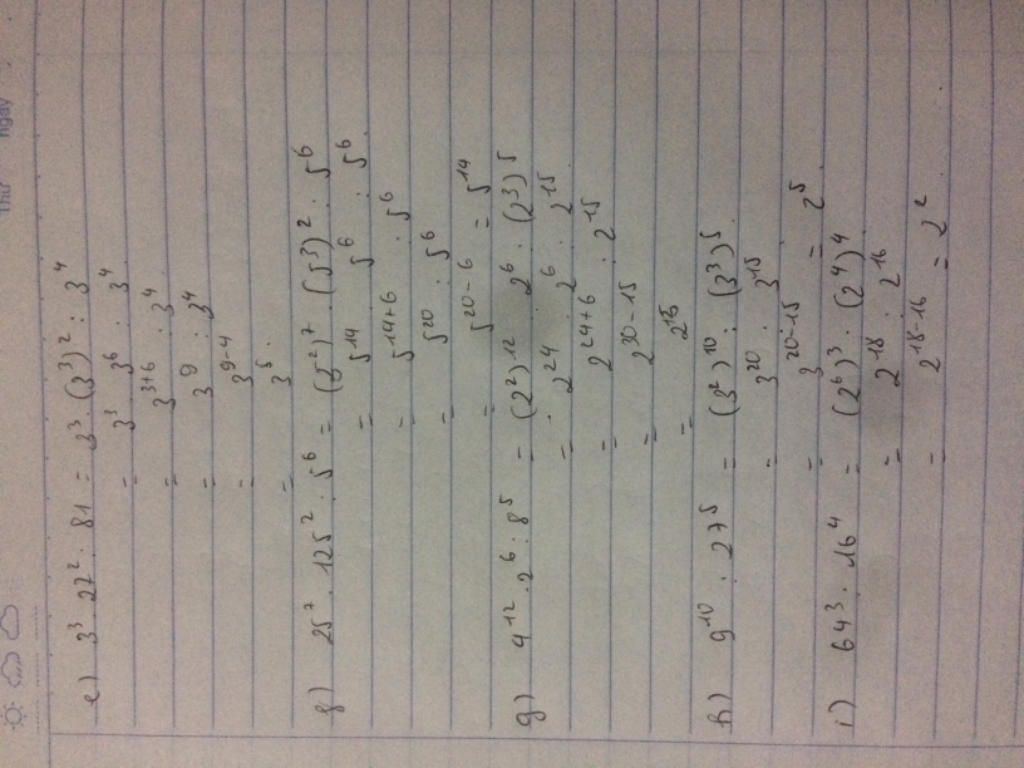 Thứ ngày
e) 3³ . 27² : 81 = 3³ . (3³)² : 3⁴
= 3³ . 3⁶ : 3⁴
= 3³⁺⁶ : 3⁴
= 3⁹ : 3⁴
= 3⁹⁻⁴
= 3⁵.
f) 25⁷ . 125² : 5⁶ = (5²)⁷ . (5³)² : 5⁶
= 5¹⁴ . 5⁶ : 5⁶
= 5¹⁴⁺⁶ : 5⁶
= 5²⁰ : 5⁶
= 5²⁰⁻⁶ = 5¹⁴
g) 4¹² . 2⁶ : 8⁵ = (2²)¹² . 2⁶ : (2³)⁵
= 2²⁴ . 2⁶ : 2¹⁵
= 2²⁴⁺⁶ : 2¹⁵
= 2³⁰⁻¹⁵
= 2¹⁵
h) 9¹⁰ : 27⁵ = (3²)¹⁰ : (3³)⁵.
= 3²⁰ : 3¹⁵
= 3²⁰⁻¹⁵ = 2⁵
i) 64³ : 16⁴ = (2⁶)³ : (2⁴)⁴
= 2¹⁸ : 2¹⁶
= 2¹⁸⁻¹⁶ = 2²